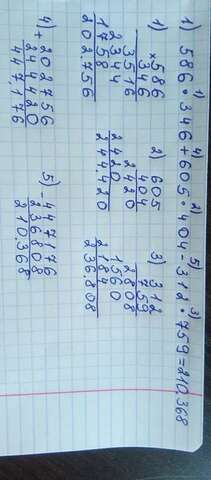 1) 4) 2) 5) 3)
1) 586 · 346 + 605 · 404 - 312 · 759 = 210.368
1) × 586
346
3516
2344
1758
202.756
2) 605
404
2420
2420
244.420
3) 312
759
2808
1560
2184
236.808
4) + 202756
244420
447.176
5) - 447176
236808
210.368